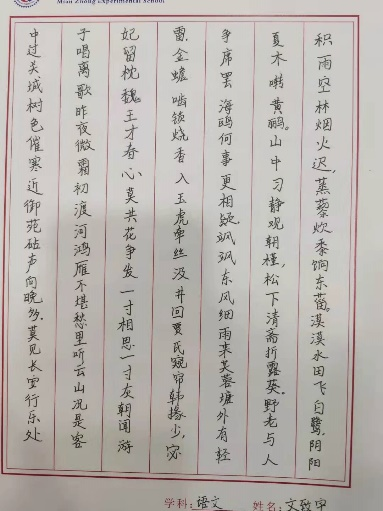 Mian Zhong Experimental School
积雨空林烟火迟，蒸藜炊黍饷东菑。漠漠水田飞白鹭，阴阳
夏木啭黄鹂。山中习静观朝槿，松下清斋折露葵。野老与人
争席罢，海鸥何事更相疑。飒飒东风细雨来芙蓉塘外有轻
雷。金蟾啮锁烧香入玉虎牵丝汲井回贾氏窥帘韩掾少，宓
妃留枕魏王才春心莫共花争发一寸相思一寸灰朝闻游
子唱离歌昨夜微霜初渡河鸿雁不堪愁里听云山况是客
中过关城树色催寒近御苑砧声向晚多。莫见长安行乐处
学科：语文 姓名：文致甲